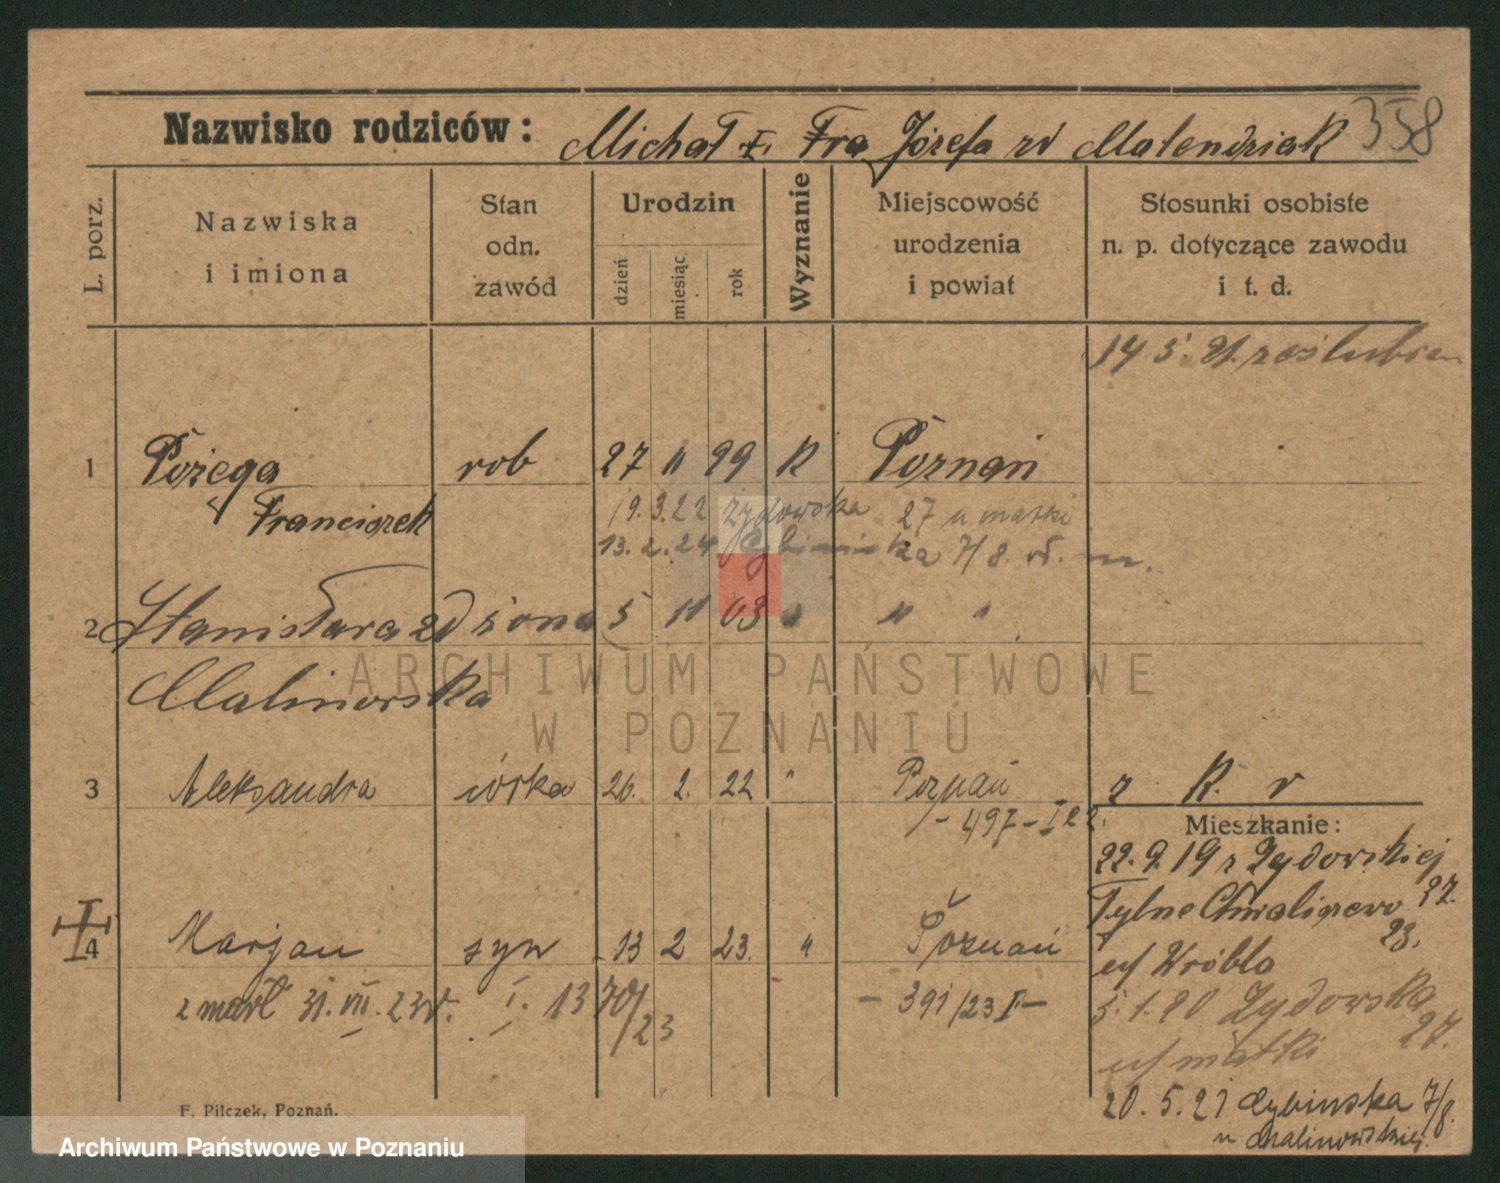 358
Nazwisko rodziców: Michał i Fra Józefa zd Matendziak
L. porz.
Nazwiska i imiona
Stan odn. zawód
Urodzin
dzień miesiąc rok
Wyznanie
Miejscowość urodzenia i powiat
Stosunki osobiste n. p. dotyczące zawodu i t. d.
14 5. 21. zaślubien
1 Pożega rob 27 11 99 K Poznań
Franciszek
19.3.22 Żydowska 27 u matki
13.2.24 Cybińska 7/8
2 Stanisława zd żona 5 11 03 " " "
Malinowska
3 Aleksandra córka 26. 2. 22 " Poznań z K. v
- 497 - I 22.
Mieszkanie:
22.9.19 z Żydowskiej 27.
Tylne Chwaliszewo 23.
4 Marjan syn 13 2 23. " Poznań
u/ Wróbla
zmarł 31. VII. 23 r. I. 1370/23
- 391/23 I -
5.1.20 Żydowska 27.
u/ matki
20.5.21 Cybinska 7/8.
u Malinowskiej.
F. Pilczek, Poznań.
ARCHIWUM PAŃSTWOWE
W POZNANIU
Archiwum Państwowe w Poznaniu